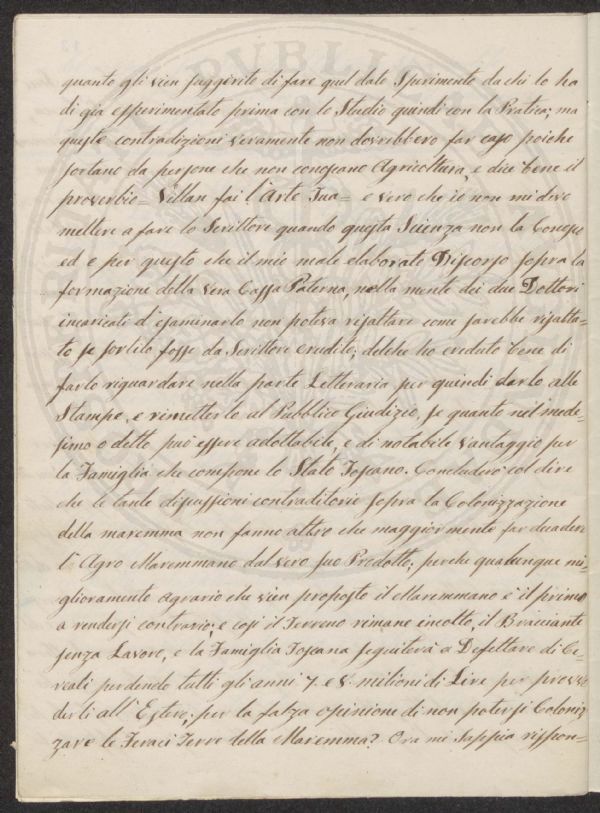 quanto gli vien suggerito di fare quel dato Sperimento da chi lo ha
di già esperimentato prima con lo Studio quindi con la Pratica; ma
queste contradizioni veramente non dovrebbero far caso poiche
sortano da persone che non conoscano Agricoltura, e dice bene il
proverbio= Villan fai l'Arte Tua= e vero che io non mi devo
mettere a fare lo Scrittore quando questa Scienza non la Conosco
ed e per questo che il mio male elaborato Discorso sopra la
formazione della vera Cassa Paterna, nella mente dei due Dottori
incaricati d'esaminarlo non poteva risaltare come sarebbe risalta=
to se sortito fosse da Scrittore erudito; delche ho creduto bene di
farlo riguardare nella parte Letteraria per quindi darlo alle
Stampe, e rimetterlo al Pubblico Giudizio, se quanto nel mede=
simo o detto può essere adottabile, e di notabile vantaggio per
la Famiglia che compone lo Stato Toscano. Concluderò col dire
che le tante discussioni contraditorie sopra la Colonizzazione
della maremma non fanno altro che maggiormente far decadere
l'Agro Maremmano dal vero suo Prodotto; perche qualunque mi=
glioramento agrario che vien proposto il Maremmano e il primo
a rendersi contrario; e così il Terreno rimane incolto, il Bracciante
senza Lavoro, e la Famiglia Toscana seguiterà a Difettare di Ce=
reali perdendo tutti gli anni 7 e 8 milioni di Lire per provve
derli all'Estero, per la falza opinione di non potersi Coloniz
zare le Feraci Terre della Maremma? Ora mi Sappia rispon=